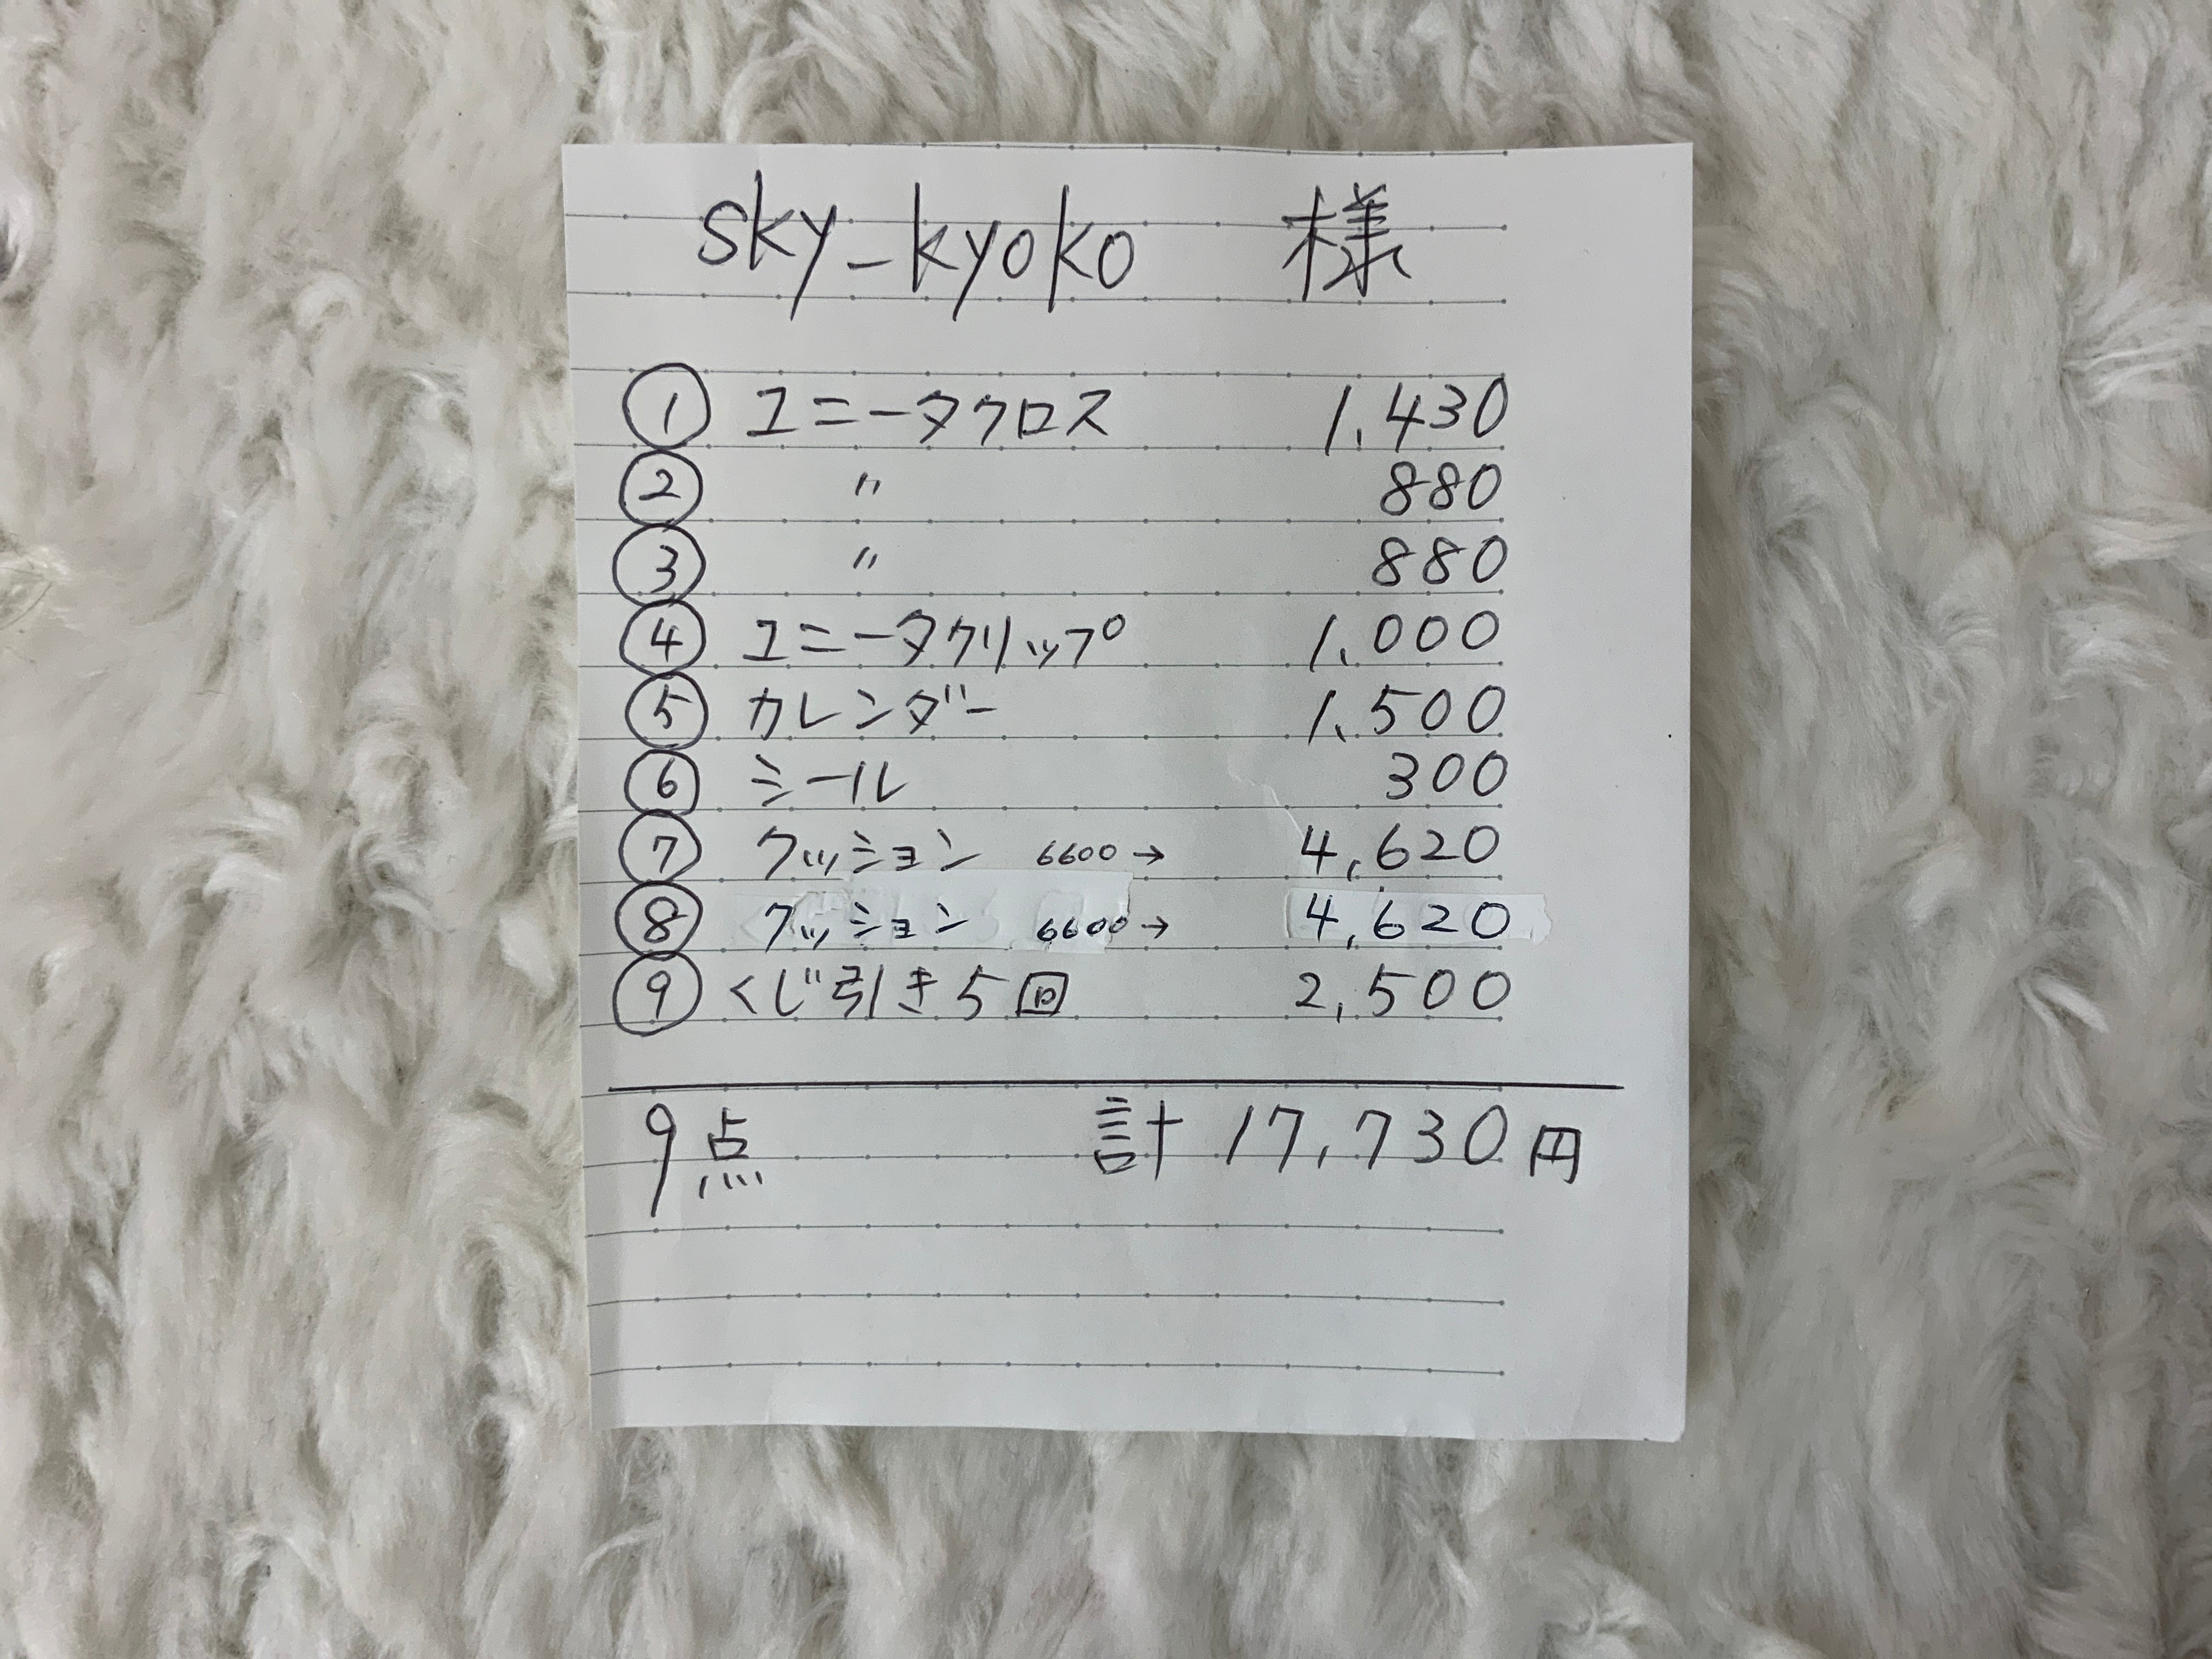 sky_kyoko 様
① ユニータクロス 1,430
② 〃 880
③ 〃 880
④ ユニータクリップ 1,000
⑤ カレンダー 1,500
⑥ ミール 300
⑦ クッション 6600→ 4,620
⑧ クッション 6600→ 4,620
⑨ くじ引き5回 2,500
9点 計 17,730円